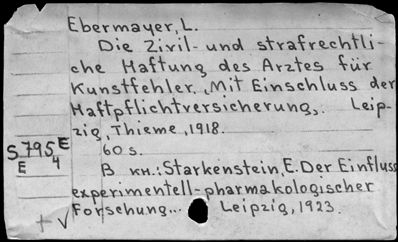 Ebermayer, L.
Die Zivil- und strafrechtli-
che Haftung des Arztes für
Kunstfehler. Mit Einschluss der
Haftpflichtversicherung,. Leip-
zig, Thieme, 1918.
S 795 E
E 4
60 s.
В кн.: Starkenstein, E. Der Einfluss
experimentell-pharmakologischer
Forschung... Leipzig, 1923.
+ √